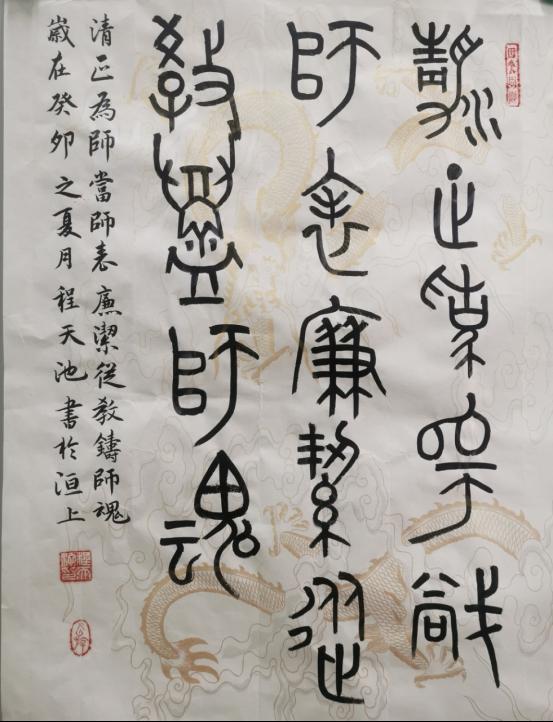 清正為師當
師表廉潔從
教鑄師魂
清正為師當師表廉潔從教鑄師魂
歲在癸卯之夏月程天池書於洹上